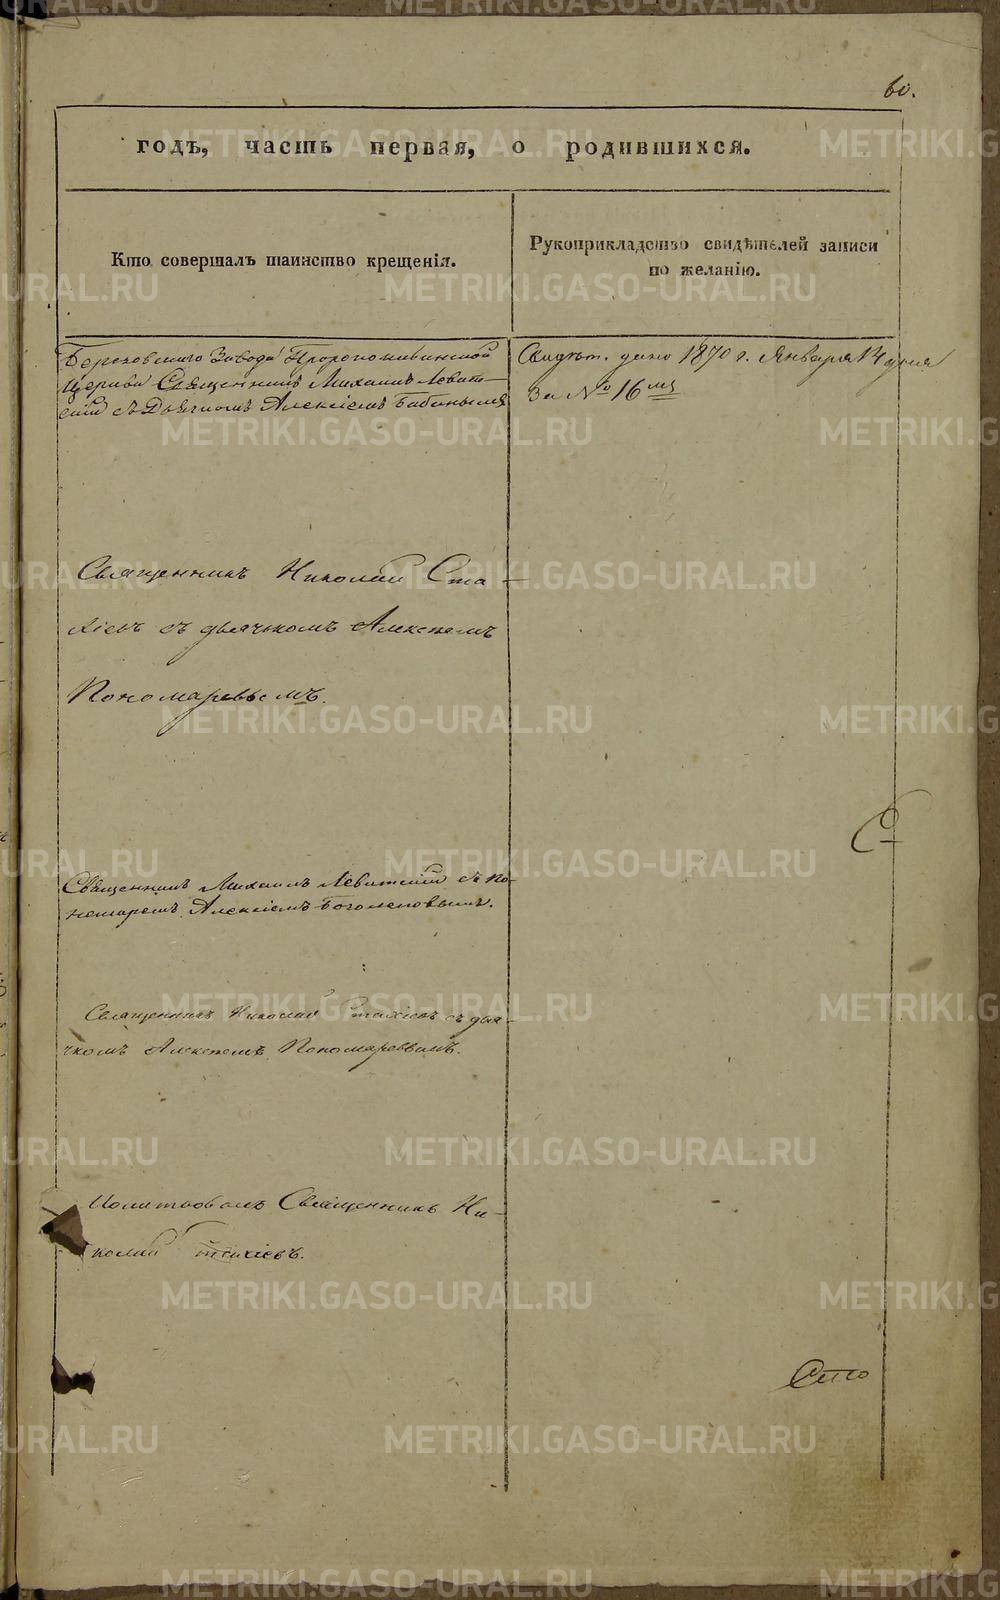 60.
годъ, часть первая, о родившихся.
Кто совершалъ таинство крещенія.
Рукоприкладство свидѣтелей записи
по желанію.
Березовскаго Завода Пророкоильинской
Церкви Священникъ Михаилъ Левит-
скій съ Дьячкомъ Алексіемъ Бабинымъ
Свидѣт. дано 1870 г. Января 14 дня
За № 16
Священникъ Николай Ста-
хіевъ съ дьячкомъ Алексѣемъ
Пономаревымъ.
Священникъ Михаилъ Левитскій съ по-
номаремъ Алексіемъ Боголеповымъ.
Священникъ Николай Стахіевъ съ дья-
чкомъ Алексѣемъ Пономаревымъ.
Молитвовалъ Священникъ Ни-
колай Стахіевъ.
METRIKI.GASO-URAL.RU